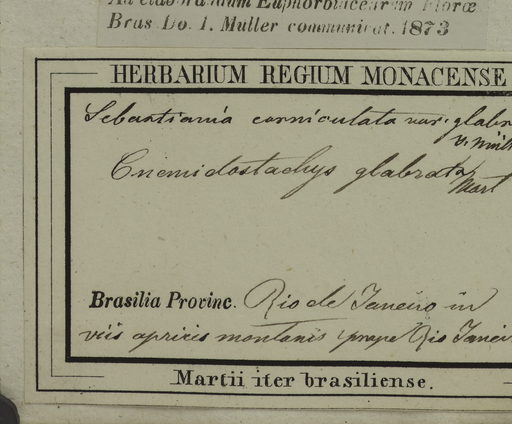 Ad elaborandum Euphorbiacearum Floræ
Bras Do. I. Muller communicat. 1873
HERBARIUM REGIUM MONACENSE
Sebastiania corniculata var: glabr
v. Müll
Cnemidostachys glabrata
Mart
Brasilia Provinc. Rio de Janeiro in
viis apricis montanis prope Rio Janei
Martii iter brasiliense.